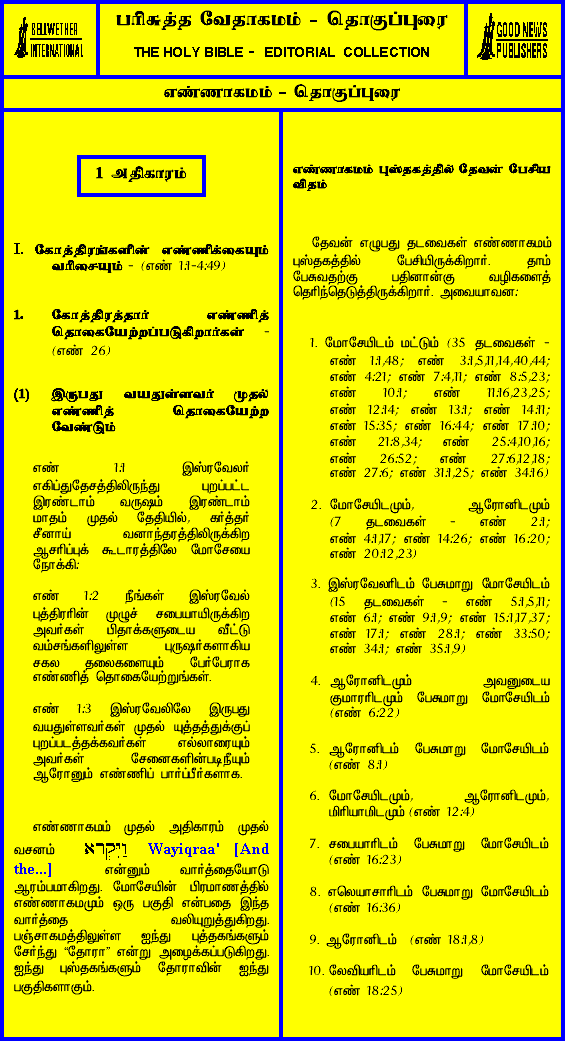 BELLWETHER
INTERNATIONAL
பரிசுத்த வேதாகமம் - தொகுப்புரை
THE HOLY BIBLE - EDITORIAL COLLECTION
GOOD NEWS
PUBLISHERS
எண்ணாகமம் - தொகுப்புரை
1 அதிகாரம்
I. கோத்திரங்களின் எண்ணிக்கையும்
வரிசையும் - (எண் 1:1-4:49)
1. கோத்திரத்தார் எண்ணித்
தொகையேற்றப்படுகிறார்கள் -
(எண் 26)
(1) இருபது வயதுள்ளவர் முதல்
எண்ணித் தொகையேற்ற
வேண்டும்
எண் 1:1 இஸ்ரவேலர்
எகிப்துதேசத்திலிருந்து புறப்பட்ட
இரண்டாம் வருஷம் இரண்டாம்
மாதம் முதல் தேதியில், கர்த்தர்
சீனாய் வனாந்தரத்திலிருக்கிற
ஆசரிப்புக் கூடாரத்திலே மோசேயை
நோக்கி:
எண் 1:2 நீங்கள் இஸ்ரவேல்
புத்திரரின் முழுச் சபையாயிருக்கிற
அவர்கள் பிதாக்களுடைய வீட்டு
வம்சங்களிலுள்ள புருஷர்களாகிய
சகல தலைகளையும் பேர்பேராக
எண்ணித் தொகையேற்றுங்கள்.
எண் 1:3 இஸ்ரவேலிலே இருபது
வயதுள்ளவர்கள் முதல் யுத்தத்துக்குப்
புறப்படத்தக்கவர்கள் எல்லாரையும்
அவர்கள் சேனைகளின்படிநீயும்
ஆரோனும் எண்ணிப் பார்ப்பீர்களாக.
எண்ணாகமம் முதல் அதிகாரம் முதல்
வசனம் וַיִּקְרָא Wayiqraa' [And
the...] என்னும் வார்த்தையோடு
ஆரம்பமாகிறது. மோசேயின் பிரமாணத்தில்
எண்ணாகமமும் ஒரு பகுதி என்பதை இந்த
வார்த்தை வலியுறுத்துகிறது.
பஞ்சாகமத்திலுள்ள ஐந்து புத்தகங்களும்
சேர்ந்து “தோரா” என்று அழைக்கப்படுகிறது.
ஐந்து புஸ்தகங்களும் தோராவின் ஐந்து
பகுதிகளாகும்.
எண்ணாகமம் புஸ்தகத்தில் தேவன் பேசிய
விதம்
தேவன் எழுபது தடவைகள் எண்ணாகமம்
புஸ்தகத்தில் பேசியிருக்கிறார். தாம்
பேசுவதற்கு பதினான்கு வழிகளைத்
தெரிந்தெடுத்திருக்கிறார். அவையாவன:
1. மோசேயிடம் மட்டும் (35 தடவைகள் -
எண் 1:1,48; எண் 3:1,5,11,14,40,44;
எண் 4:21; எண் 7:4,11; எண் 8:5,23;
எண் 10:1; எண் 11:16,23,25;
எண் 12:14; எண் 13:1; எண் 14:11;
எண் 15:35; எண் 16:44; எண் 17:10;
எண் 21:8,34; எண் 25:4,10,16;
எண் 26:52; எண் 27:6,12,18;
எண் 27:6; எண் 31:1,25; எண் 34:16)
2. மோசேயிடமும், ஆரோனிடமும்
(7 தடவைகள் - எண் 2:1;
எண் 4:1,17; எண் 14:26; எண் 16:20;
எண் 20:12,23)
3. இஸ்ரவேலரிடம் பேசுமாறு மோசேயிடம்
(15 தடவைகள் - எண் 5:1,5,11;
எண் 6:1; எண் 9:1,9; எண் 15:1,17,37;
எண் 17:1; எண் 28:1; எண் 33:50;
எண் 34:1; எண் 35:1,9)
4. ஆரோனிடமும் அவனுடைய
குமாரரிடமும் பேசுமாறு மோசேயிடம்
(எண் 6:22)
5. ஆரோனிடம் பேசுமாறு மோசேயிடம்
(எண் 8:1)
6. மோசேயிடமும், ஆரோனிடமும்,
மிரியாமிடமும் (எண் 12:4)
7. சபையாரிடம் பேசுமாறு மோசேயிடம்
(எண் 16:23)
8. எலெயாசாரிடம் பேசுமாறு மோசேயிடம்
(எண் 16:36)
9. ஆரோனிடம் (எண் 18:1,8)
10. லேவியரிடம் பேசுமாறு மோசேயிடம்
(எண் 18:25)